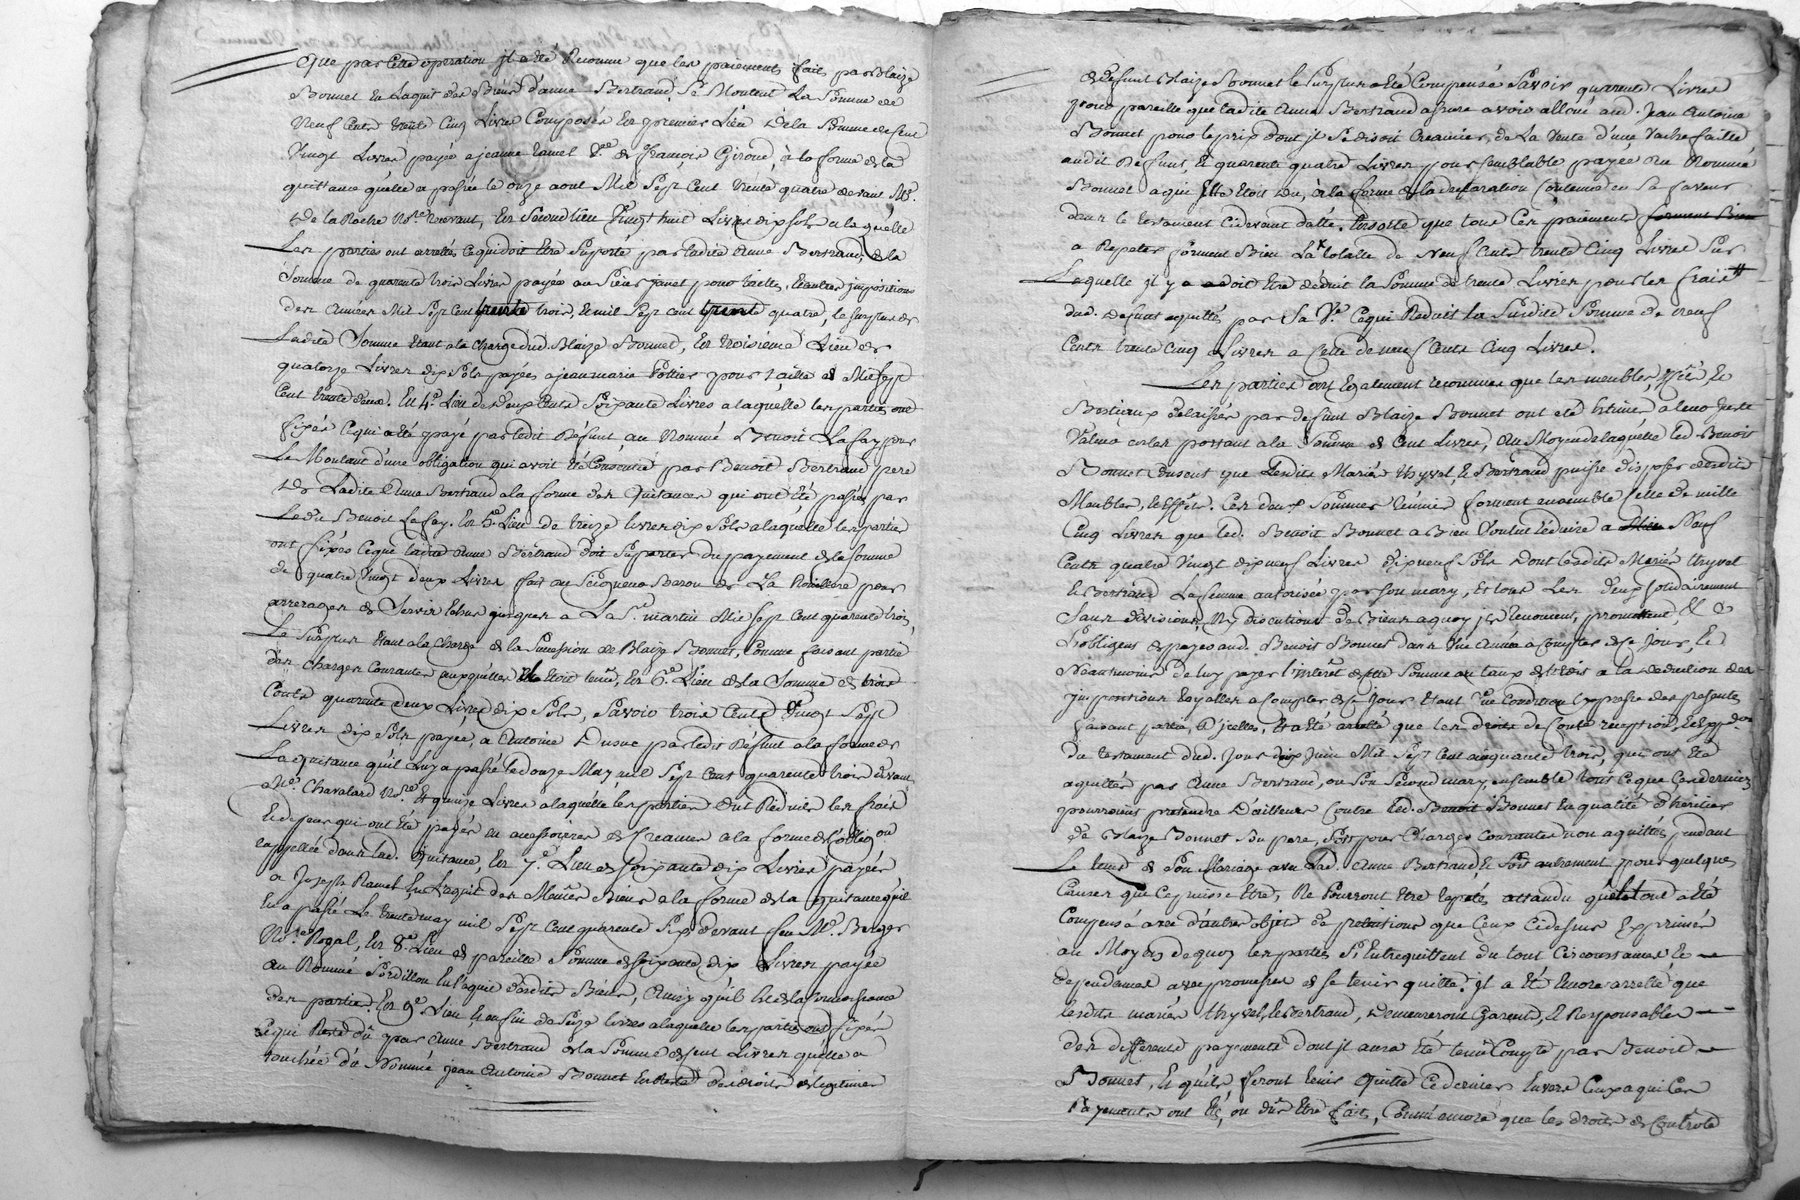 Que par cette operation jl a été Reconnu que les paiements faits par Blaize
Bonnet En Laquit des Biens d'anne Bertrand Se Montent La Somme de
Neuf Cents trente Cinq Livres Composés En premier Lieu de la Somme de Cent
Vingt Livres payée a jeanne Ramel Vve de françois Giroud, à la forme de la
quittance qu'elle a passée le onze aout Mil Sept Cent trente quatre devant Me.
de la Roche Nore Recevant, En Second lieu Vingt huit Livres dix sols a laquelle
Les parties ont arretés ce qui doit Etre Suporté par ladite Anne Bertrand, de la
Somme de quarente trois Livres payée au Sieur janet pour tailles, & autres jmpositions
des Années Mil Sept Cent trente trois, & mil Sept cent trente quatre, le surplus de
Ladite Somme Etant a la charge dud. Blaize Bonnet, En troisieme Lieu de
quatorze Livres dix Sols payées a jean marie Pottier pour taille de Mil Sept
Cent trente deux. En 4e. Lieu de deux Cents Soixante Livres a laquelle les parties ont
fixés ce qui a été payé par ledit Défunt au Nommé Benoit Lafay pour
Le Montant d'une obligation qui avoit été Consentie par Benoit Bertrand pere
de Ladite Anne Bertrand a la forme des Quitances qui ont été passées par
Ledit Benoit Lafay. En 5e. Lieu de treize livres dix Sols a laquelle les partie
ont fixés ce que ladite Anne Bertrand doit Suporter du payement de la somme
de quatre Vingt deux Livres fait au Seigneur Baron de La Roilliere pour
arrerages de Servis Echus jusques a La St. martin Mil Sept cent quarente trois,
Le Surplus Etant a la charge de la Succession de Blaize Bonnet, Comme faisant partie
des charges Courantes auxquelles Etoit tenu, En 6e. Lieu de la Somme de trois
Cents quarente deux Livres dix Sols, Savoir trois Cents Vingt Sept
Livres dix Sols payée, a Antoine Dusuc par ledit Défunt a la forme de
La quitance qu'il Luy a passé le douze May mil Sept Cent quarente trois devant
Me. Chavalard Nore. Et quinze Livres a laquelle les parties ont Reduit les frais
Et depens qui ont été payés en accessoires de creance a la forme de l'oblig.on
rappellée dans lad. Quitance, En 7e. Lieu de Soixante dix Livres payées
a Joseph Ramel En L'aquit des Mêmes Biens a la forme de la Quitance qu'il
En a passé Le trente may mil Sept Cent quarente Six devant feu Me. Berger
Nore. Royal, En 8e. Lieu de pareille Somme de Soixante dix Livres payée
au Nommé Pordillon En l'aquit desdits Biens, Ainsy qu'il Est de la Connoissance
des parties. En 9e. Lieu & enfin de Seize livres a laquelle les parties ont fixés
ce qui Reste dû par Anne Bertrand de la Somme de Cent Livres qu'elle a
touchée du Nommé jean Antoine Bonnet En Reste de droits de legitimes
dedefunt Blaize Bonnet le Surplus a été Compensé Savoir quarente Livres
pour pareille que ladite Anne Bertrand assure avoir alloué aud. Jean Antoine
Bonnet pour le prix dont jl Se disoit Creancier, de La Vente d'une Vache faitte
audit Defunt, & quarente quatre Livres pour semblable payée au Nommé
Bonnet a qui Elle Etoit Due, à la forme de la declaration Contenue en Sa faveur
dans le testament cidevant datté. Ensorte que tous ces paiements forment Bien
a Repeter forment Bien La totalle de Neuf Cents trente Cinq Livres Sur
Laquelle jl y a doit Etre deduit la Somme de trente Livres pour les frais
dud. Defunt aquittés par Sa Vve. Ce qui Reduit la Susdite Somme de neuf
Cents trente Cinq Livres a Celle de neuf Cents Cinq Livres.
Les parties ont Egalement reconnues que les meubles, effets &
Bestiaux delaissés par defunt Blaize Bonnet ont été Estimés a leur juste
Valeur & les portant a la Somme de Cent Livres, Au Moyen de laquelle led. Benoit
Bonnet Consent que Lesdits Mariés thyvel, & Bertrand puisse disposer desdits
Meubles, & effets. Ces deux Sommes reünie forment ensemble Celle de mille
Cinq Livres que led. Benoit Bonnet a Bien Voulue Reduire a Neuf
Cents quatre Vingt dix neuf Livres dix neuf Sols Dont lesdits Mariés thyvel
& Bertrand La femme autorisée par son mary, Et tous Les deux solidairement
Sans divisions, Ny discutions de Biens a quoy jls renoncent, promettent, & 
S'obligent de payer aud. Benoit Bonnet dans Une Année a Compter de Ce jour, Et
Néanmoins de luy payer l'interêt de cette Somme au taux de l'Edit a la deduction des
jmpositions Royalles a Compter de Ce Jour Etant Une Condition Expresse des presents
faisant partie d'jcelles, Et a été arretté que les droits de Controlle reception, & expp.don
du testament dud. Jour dix Juin Mil Sept Cent cinquante trois, qui ont été
aquittés par Anne Bertrand, ou Son Second mary, ensemble tout Ce que Ces derniers
pourroient pretendre D'ailleurs Contre led. Benoit Bonnet En qualité d'héritier
de Blaize Bonnet Son pere, Soit pour Charges Courantes non aquittés pendant
Le tems de Son Mariage avec Lad. Anne Bertrand, & Soit autrement pour quelques
Causes que Ce puisse être, Ne Pourront Etre repetés attandu que le tout a été
Compensé avec d'autres objets de pretentions que Ceux Cidessus Exprimés
au Moyen de quoy les parties S'Entrequittent du tout Circonstances, &
dependances avec promesses de Se tenir quittes. jl a été Encore arretté que
lesdits mariés thyvel, & Bertrand, demeureront Garents, & Responsables
des differents payements dont jl aura été tenu Compte par Benoit
Bonnet, Et qu'ils feront tenir Quitte Ce dernier Envers Ceux a qui Ces
Payements ont été, ou dûs être faits, Convenu encore que les droits de Controlle